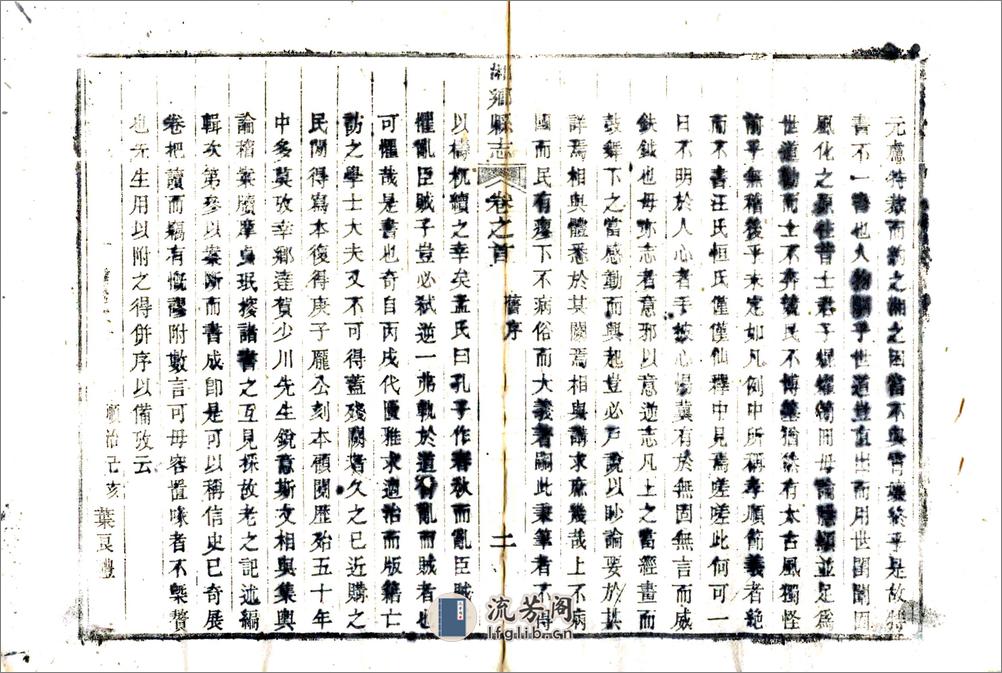 元慮特裁而新之湘之因當不與書壞終乎是故特
書不一書也人物關乎世道豈直出而用世閭閻因
風化之原往昔士君子燿燿簡冊毋論隱顯並足為
世道勸而士不奔競民不博簺猶袋有太古風獨怪
前乎無稽後乎未定如凡例中所稱孝順節義者絕
而不書汪氏恒氏僅僅仙釋中見焉嗟嗟此何可一
日不明於人心者手披心惕冀有於無固無言而威
鈇鉞也毋亦志者意邪以意逆志凡上之當經畫而
鼓舞下之當感動而興起豈必戶說以眇論要於其
詳焉相與體悉於其闕焉相與講求庶幾哉上不病
國而民有瘳下不病俗而大義著嗣此秉筆者不得
湘鄉縣志 卷之首 舊序 二
以檮杌續之幸矣孟氏曰孔子作春秋而亂臣賊
懼亂臣賊子豈必弒逆一弗軌於道皆亂而賊者也
可懼哉是書也奇自丙戌代匱雅求適治而版籍亡
訪之學士大夫又不可得蓋殘闕者久之已近購之
民間得寫本復得庚子龐公刻本顧閱歷殆五十年
中多莫攷幸鄉達賀少川先生銳意斯文相與集輿
論稽案牘摩貞珉搜諸書之互見採故老之記述編
輯次第參以案斷而書成卽是可以稱信史已奇展
卷把讀而竊有慨謬附數言可毋容置喙者不槩贅
也先生用以附之得併序以備攷云
順治己亥 葉良禮
流芳阁
lfglib.cn